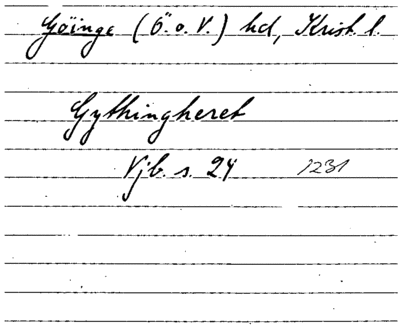 Göinge (Ö. o. V.) hd, Krist. l.
Gythingheret
Vjb. s. 24 1231